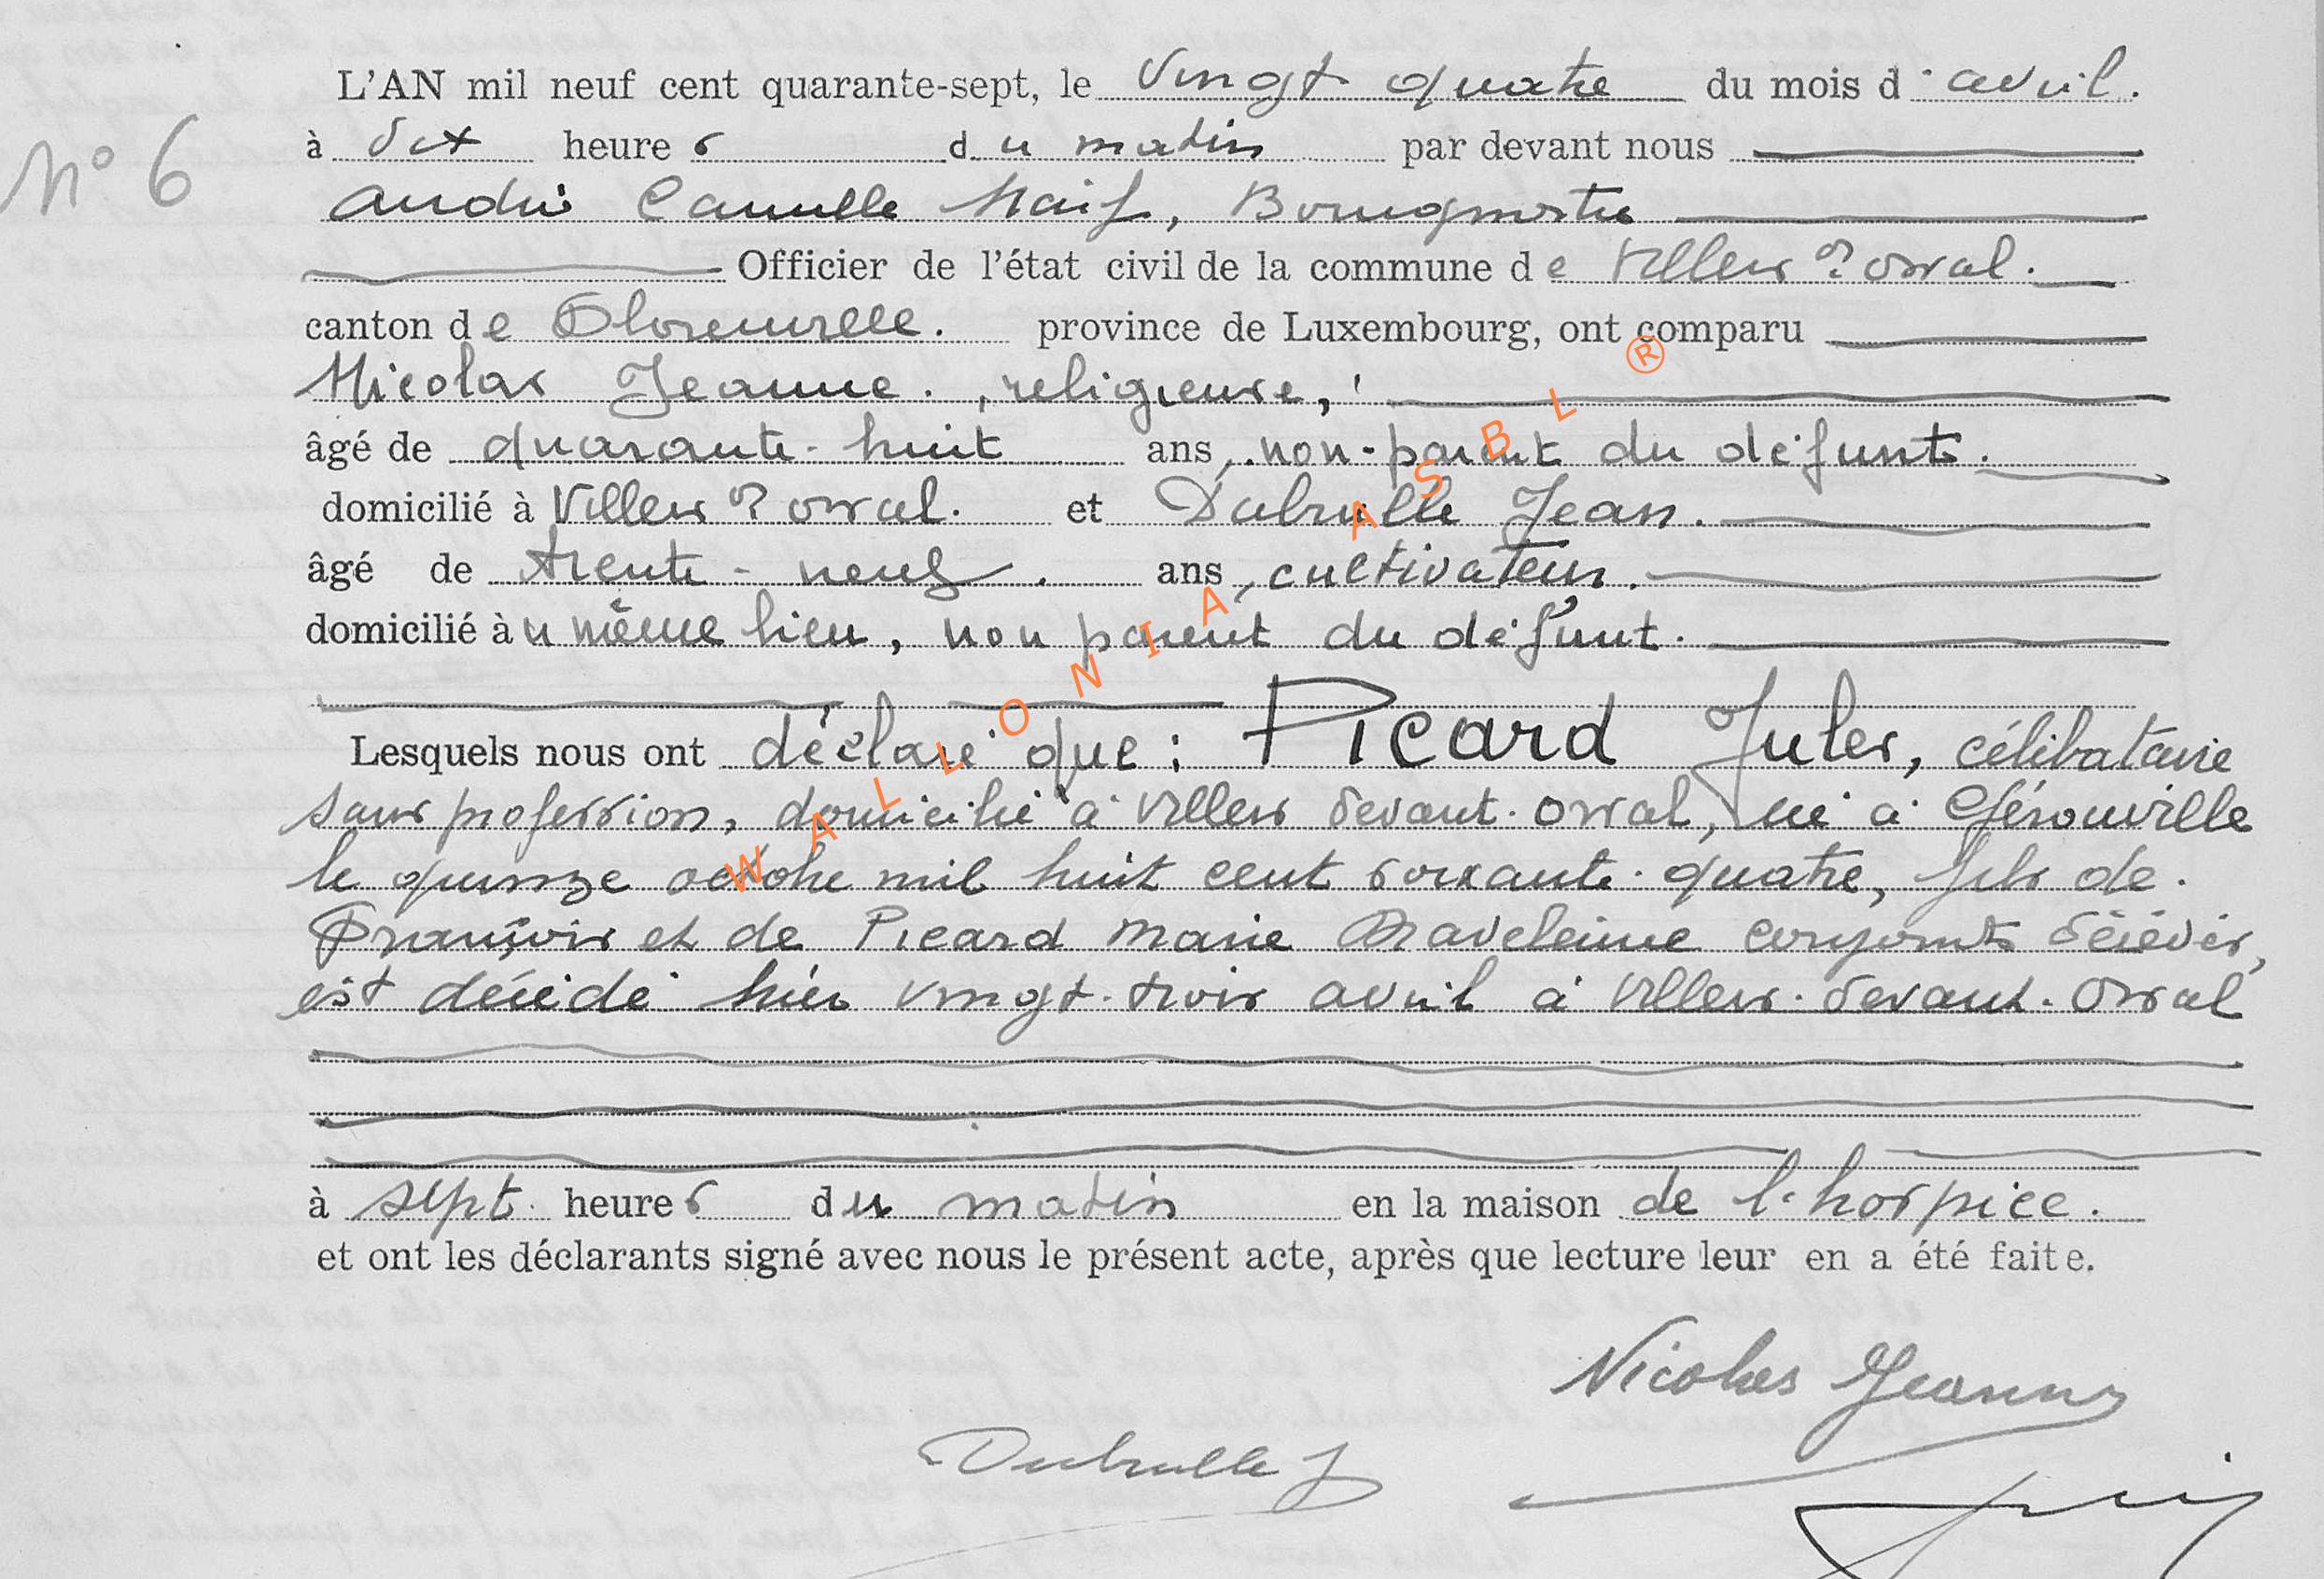 L'AN mil neuf cent quarante-sept, le vingt quatre du mois d'avril.
N° 6
à dix heures du matin par devant nous
André Camille Naif, Bourgmestre
Officier de l'état civil de la commune de Villers d orval.
canton de Florenville. province de Luxembourg, ont comparu
Nicolas Jeanne. , religieuse,
âgé de quarante-huit ans, non-parent du défunt.
domicilié à Villers d orval. et Dubrulle Jean.
âgé de trente-neuf. ans, cultivateur.
domicilié àu même lieu, non parent du défunt.
Lesquels nous ont déclaré que : Picard Jules, célibataire
sans profession, domicilié à Villers devant-Orval, né à Gérouville
le quinze octobre mil huit cent soixante-quatre, fils de.
François et de Picard Marie Madeleine conjoints décédés,
est décédé hier vingt-trois avril à Villers-devant-Orval
à sept heures du matin en la maison de l'hospice.
et ont les déclarants signé avec nous le présent acte, après que lecture leur en a été faite.
Nicolas Jeanne
Dubrulle J
WALLONIA ASBL ®